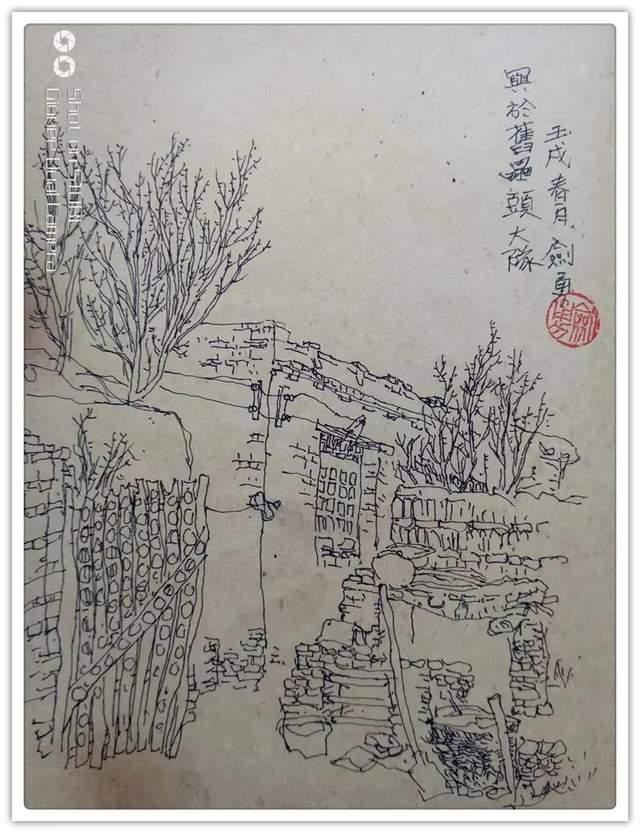 壬戌春月 劍勇
於舊頭大隊
Shot on
Gionee Dual Camera